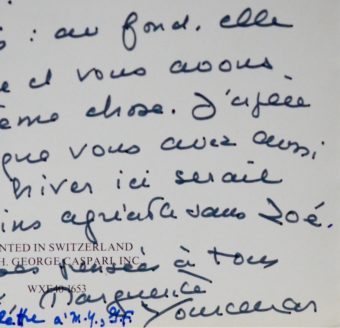 : au fond. elle
et vous avons
ème chose. J'espère
que vous avez aussi
hiver ici serait
ins agréable sans Zoé.
NTED IN SWITZERLAND
H. GEORGE CASPARI, INC.
pensées à tous
Marguerite
Yourcenar